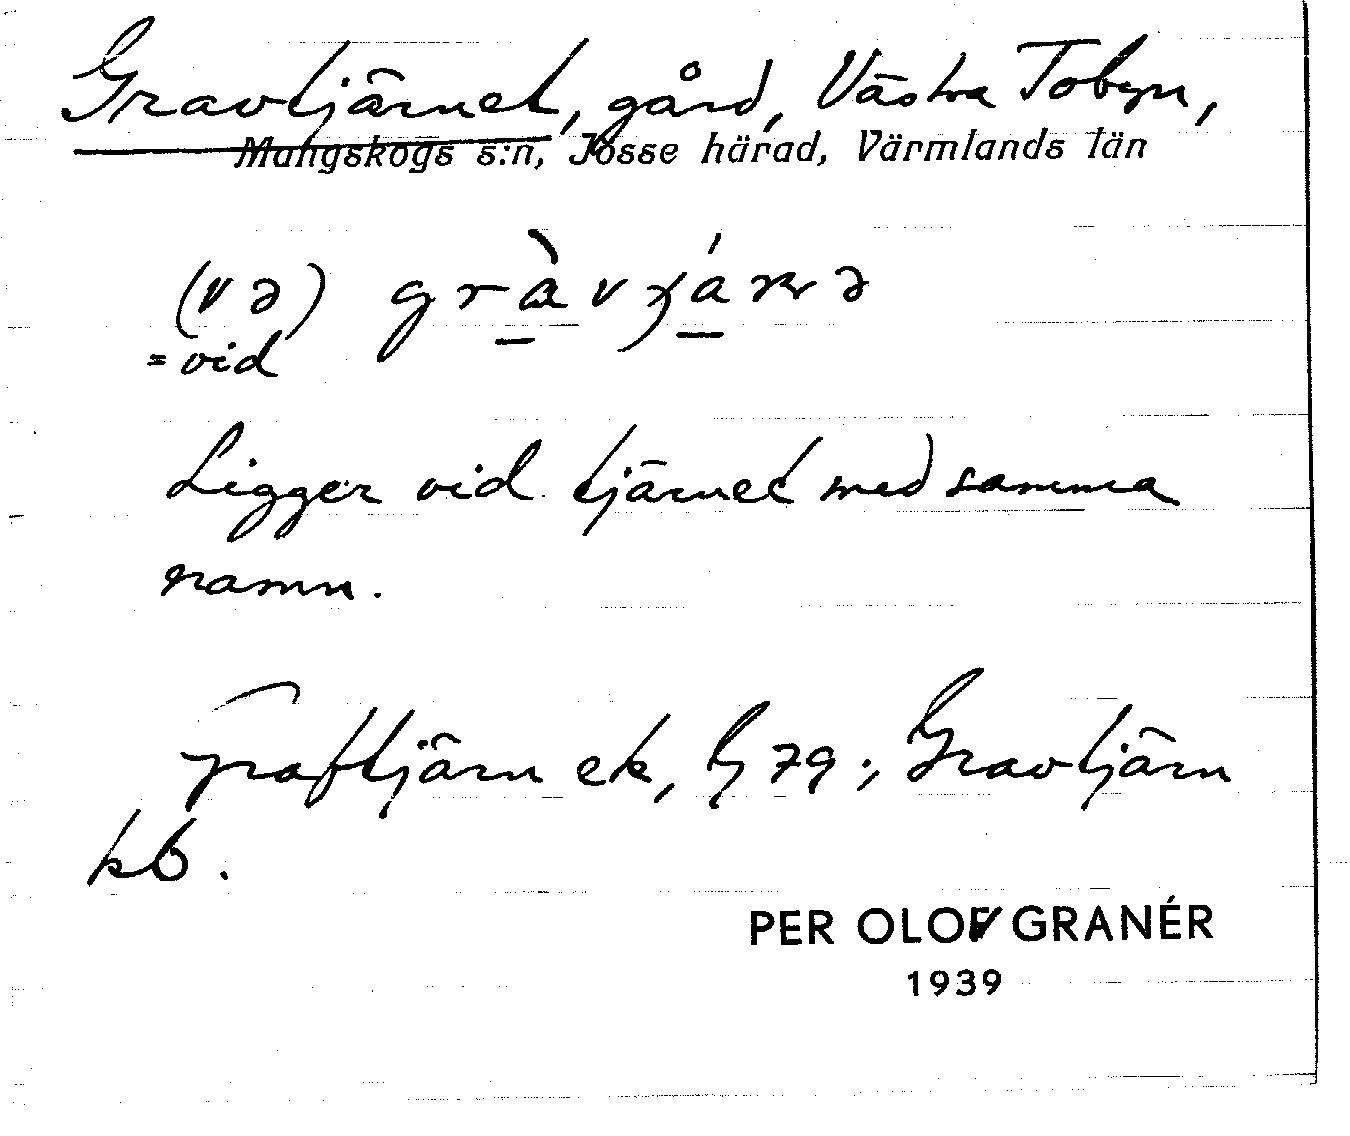 Gravtjärnet, gård, Västra Tobyn,
Mangskogs s:n, Jösse härad, Värmlands län
(v ə) gràvjánə
= vid
Ligger vid tjärnet med samma
namn.
Graftjärn ek, G 79; Gravtjärn
kb.
PER OLOV GRANÉR
1939